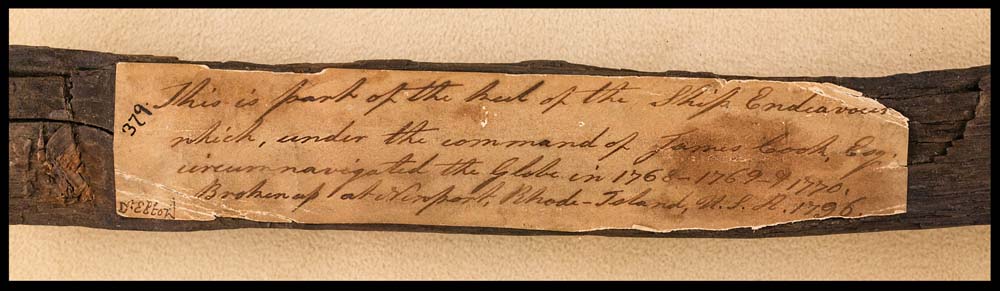 379.
This is part of the keel of the Ship Endeavour
which, under the command of James Cook, Esq.
circumnavigated the Globe in 1768–1769–& 1770.
Broken up at Newport, Rhode-Island, U.S.A. 1796.